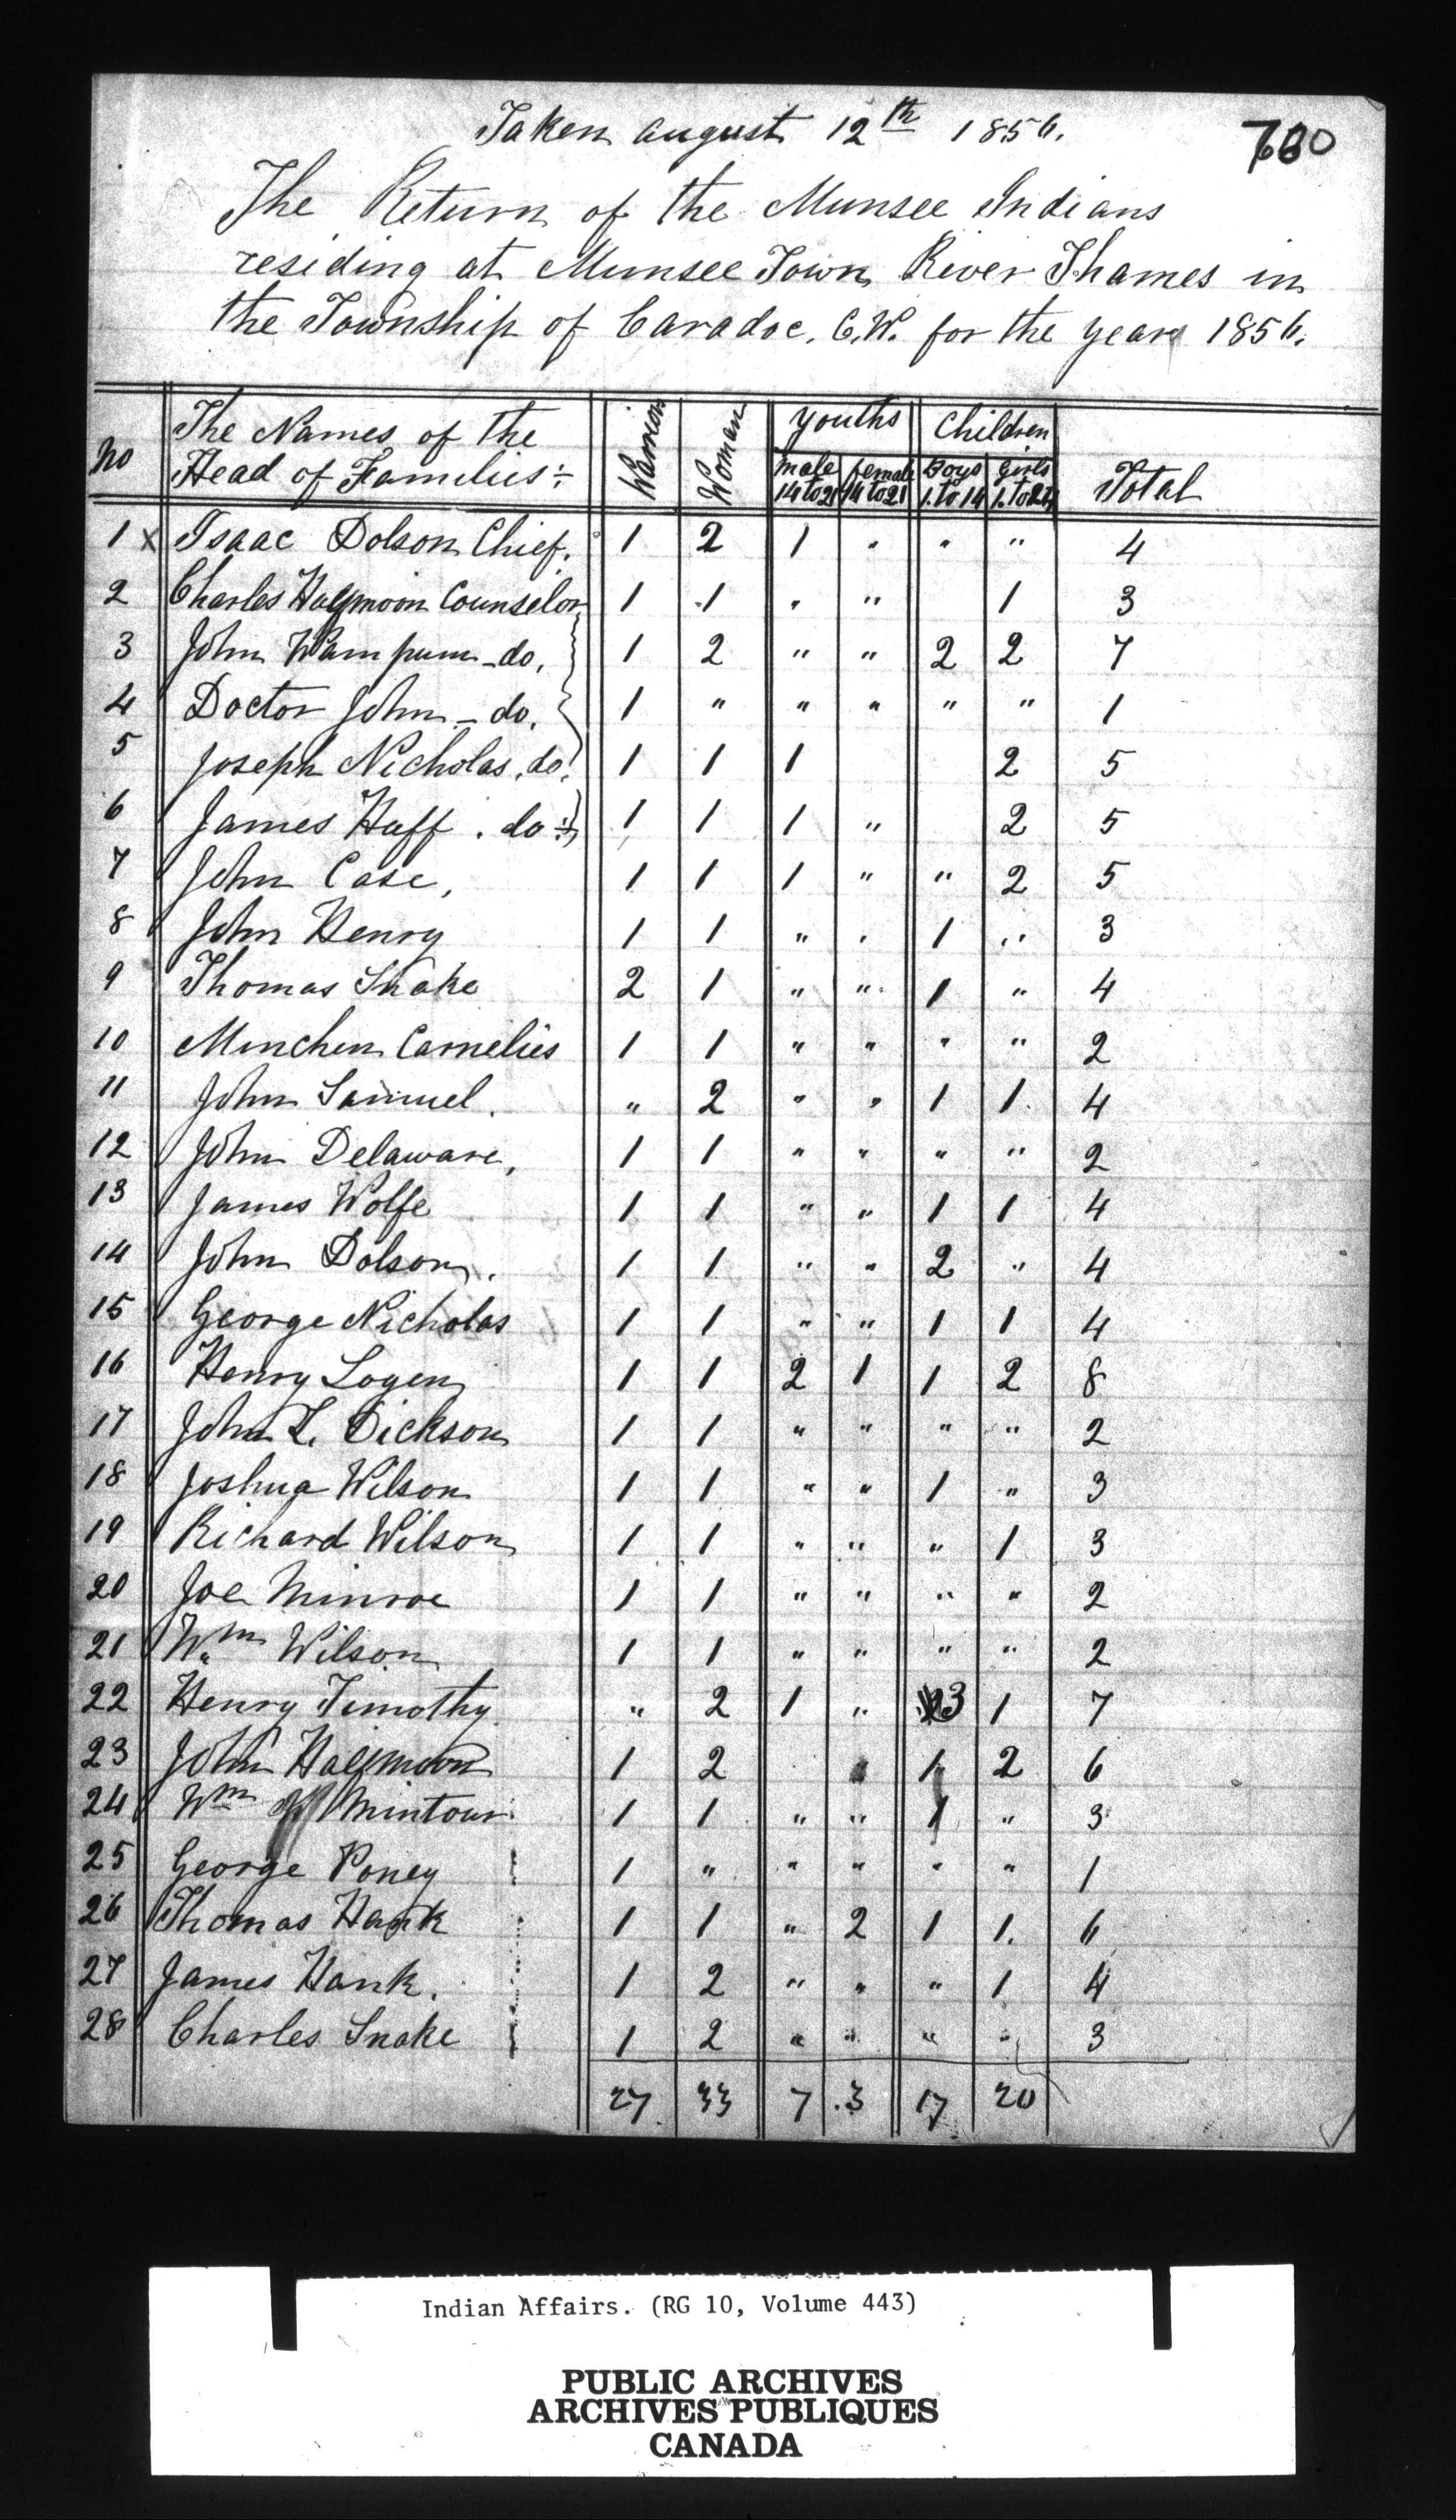 Taken august 12th 1856.
760
The Return of the Munsee Indians
residing at Munsee Town River Thames in
the Township of Caradoc. C.W. for the year 1856.
No The Names of the Head of Families:- Warriors Woman Youths Children Total
male 14 to 21 female 14 to 21 Boys 1. to 14 girls 1. to 14
1 x Isaac Dolson Chief. 1 2 1 " " " 4
2 Charles Halfmoon Counselor 1 1 " " 1 3
3 John Wampum - do. 1 2 " " 2 2 7
4 Doctor John - do. 1 " " " " " 1
5 Joseph Nicholas. do. 1 1 1 2 5
6 James Huff. do:- 1 1 1 " 2 5
7 John Case, 1 1 1 " " 2 5
8 John Henry 1 1 " " 1 " 3
9 Thomas Snake 2 1 " " 1 " 4
10 Minchen Cornelius 1 1 " " " " 2
11 John Samuel. " 2 " " 1 1 4
12 John Delaware, 1 1 " " " " 2
13 James Wolfe 1 1 " " 1 1 4
14 John Dolson. 1 1 " " 2 " 4
15 George Nicholas 1 1 " " 1 1 4
16 Henry Logen 1 1 2 1 1 2 8
17 John L. Dickson 1 1 " " " " 2
18 Joshua Wilson 1 1 " " 1 " 3
19 Richard Wilson 1 1 " " " 1 3
20 Joe Minroe 1 1 " " " " 2
21 Wm Wilson 1 1 " " " " 2
22 Henry Timothy " 2 1 " 3 1 7
23 John Halfmoon 1 2 1 2 6
24 Wm Mintour 1 1 " " 1 " 3
25 George Poney 1 " " " " " 1
26 Thomas Hank 1 1 " 2 1 1. 6
27 James Hank. 1 2 " " " 1 4
28 Charles Snake 1 2 " " " " 3
27 33 7 3 17 20
Indian Affairs. (RG 10, Volume 443)
PUBLIC ARCHIVES
ARCHIVES PUBLIQUES
CANADA